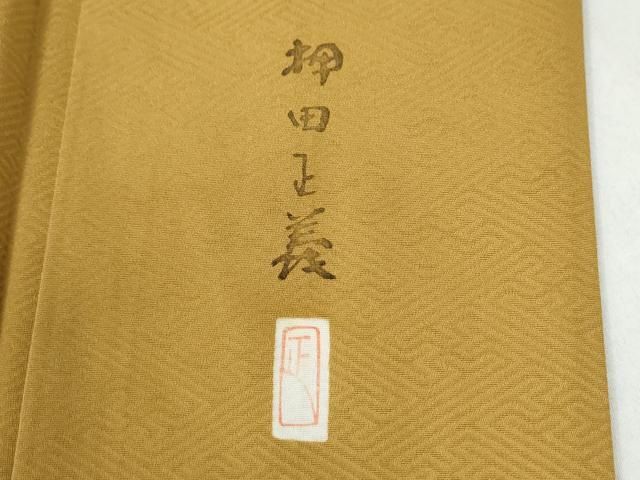 押田正義
正